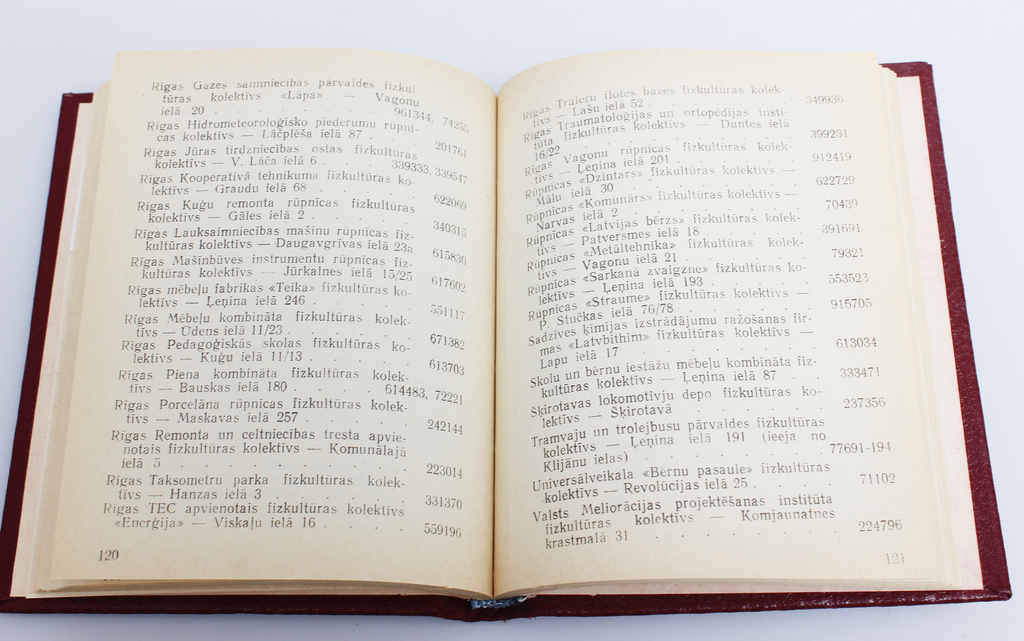 Rīgas Gāzes saimniecības pārvaldes fizkul-
tūras kolektīvs «Lāpa» — Vagonu
ielā 20 . . . . . 961344, 74255
Rīgas Hidrometeoroloģisko piederumu rūpnī-
cas kolektīvs — Lāčplēša ielā 87 . . 201761
Rīgas Jūras tirdzniecības ostas fizkultūras
kolektīvs — V. Lāča ielā 6 . . 339333, 339547
Rīgas Kooperatīvā tehnikuma fizkultūras ko-
lektīvs — Graudu ielā 68 . . . . 622069
Rīgas Kuģu remonta rūpnīcas fizkultūras
kolektīvs — Gāles ielā 2 . . . . 340315
Rīgas Lauksaimniecības mašīnu rūpnīcas fiz-
kultūras kolektīvs — Daugavgrīvas ielā 23a 615830
Rīgas Mašīnbūves instrumentu rūpnīcas fiz-
kultūras kolektīvs — Jūrkalnes ielā 15/25 617602
Rīgas mēbeļu fabrikas «Teika» fizkultūras ko-
lektīvs — Ļeņina ielā 246 . . . . 551117
Rīgas Mēbeļu kombināta fizkultūras kolek-
tīvs — Ūdens ielā 11/23 . . . . . 671382
Rīgas Pedagoģiskās skolas fizkultūras ko-
lektīvs — Kuģu ielā 11/13 . . . . 613703
Rīgas Piena kombināta fizkultūras kolek-
tīvs — Bauskas ielā 180 . . . . 614483, 72221
Rīgas Porcelāna rūpnīcas fizkultūras kolek-
tīvs — Maskavas ielā 257 . . . . 242144
Rīgas Remonta un celtniecības tresta apvie-
notais fizkultūras kolektīvs — Komunālajā
ielā 5 . . . . . . . . 223014
Rīgas Taksometru parka fizkultūras kolek-
tīvs — Hanzas ielā 3 . . . . . 331370
Rīgas TEC apvienotais fizkultūras kolektīvs
«Enerģija» — Viskaļu ielā 16 . . . . 559196
120
Rīgas Traleru flotes bāzes fizkultūras kolek-
tīvs — Lašu ielā 52 . . . . . 349936
Rīgas Traumatoloģijas un ortopēdijas insti-
tūta fizkultūras kolektīvs — Duntes ielā
16/22 . . . . . . . . 399231
Rīgas Vagonu rūpnīcas fizkultūras kolek-
tīvs — Ļeņina ielā 201 . . . . . 912419
Rūpnīcas «Dzintars» fizkultūras kolektīvs —
Mālu ielā 30 . . . . . . 622729
Rūpnīcas «Komunārs» fizkultūras kolektīvs —
Narvas ielā 2 . . . . . . 70439
Rūpnīcas «Latvijas bērzs» fizkultūras kolek-
tīvs — Patversmes ielā 18 . . . . 391691
Rūpnīcas «Metāltehnika» fizkultūras kolek-
tīvs — Vagonu ielā 21 . . . . . 79321
Rūpnīcas «Sarkanā zvaigzne» fizkultūras ko-
lektīvs — Ļeņina ielā 193 . . . . 553523
Rūpnīcas «Straume» fizkultūras kolektīvs —
P. Stučkas ielā 76/78 . . . . . 915705
Sadzīves ķīmijas izstrādājumu ražošanas fir-
mas «Latvbithim» fizkultūras kolektīvs —
Lapu ielā 17 . . . . . . 613034
Skolu un bērnu iestāžu mēbeļu kombināta fiz-
kultūras kolektīvs — Ļeņina ielā 87 . . 333471
Šķirotavas lokomotīvju depo fizkultūras ko-
lektīvs — Šķirotavā . . . . . 237356
Tramvaju un trolejbusu pārvaldes fizkultūras
kolektīvs — Ļeņina ielā 191 (ieeja no
Klijānu ielas) . . . . . . 77691-194
Universālveikala «Bērnu pasaule» fizkultūras
kolektīvs — Revolūcijas ielā 25 . . . 71102
Valsts Meliorācijas projektēšanas institūta
fizkultūras kolektīvs — Komjaunatnes
krastmalā 31 . . . . . . . 224796
121